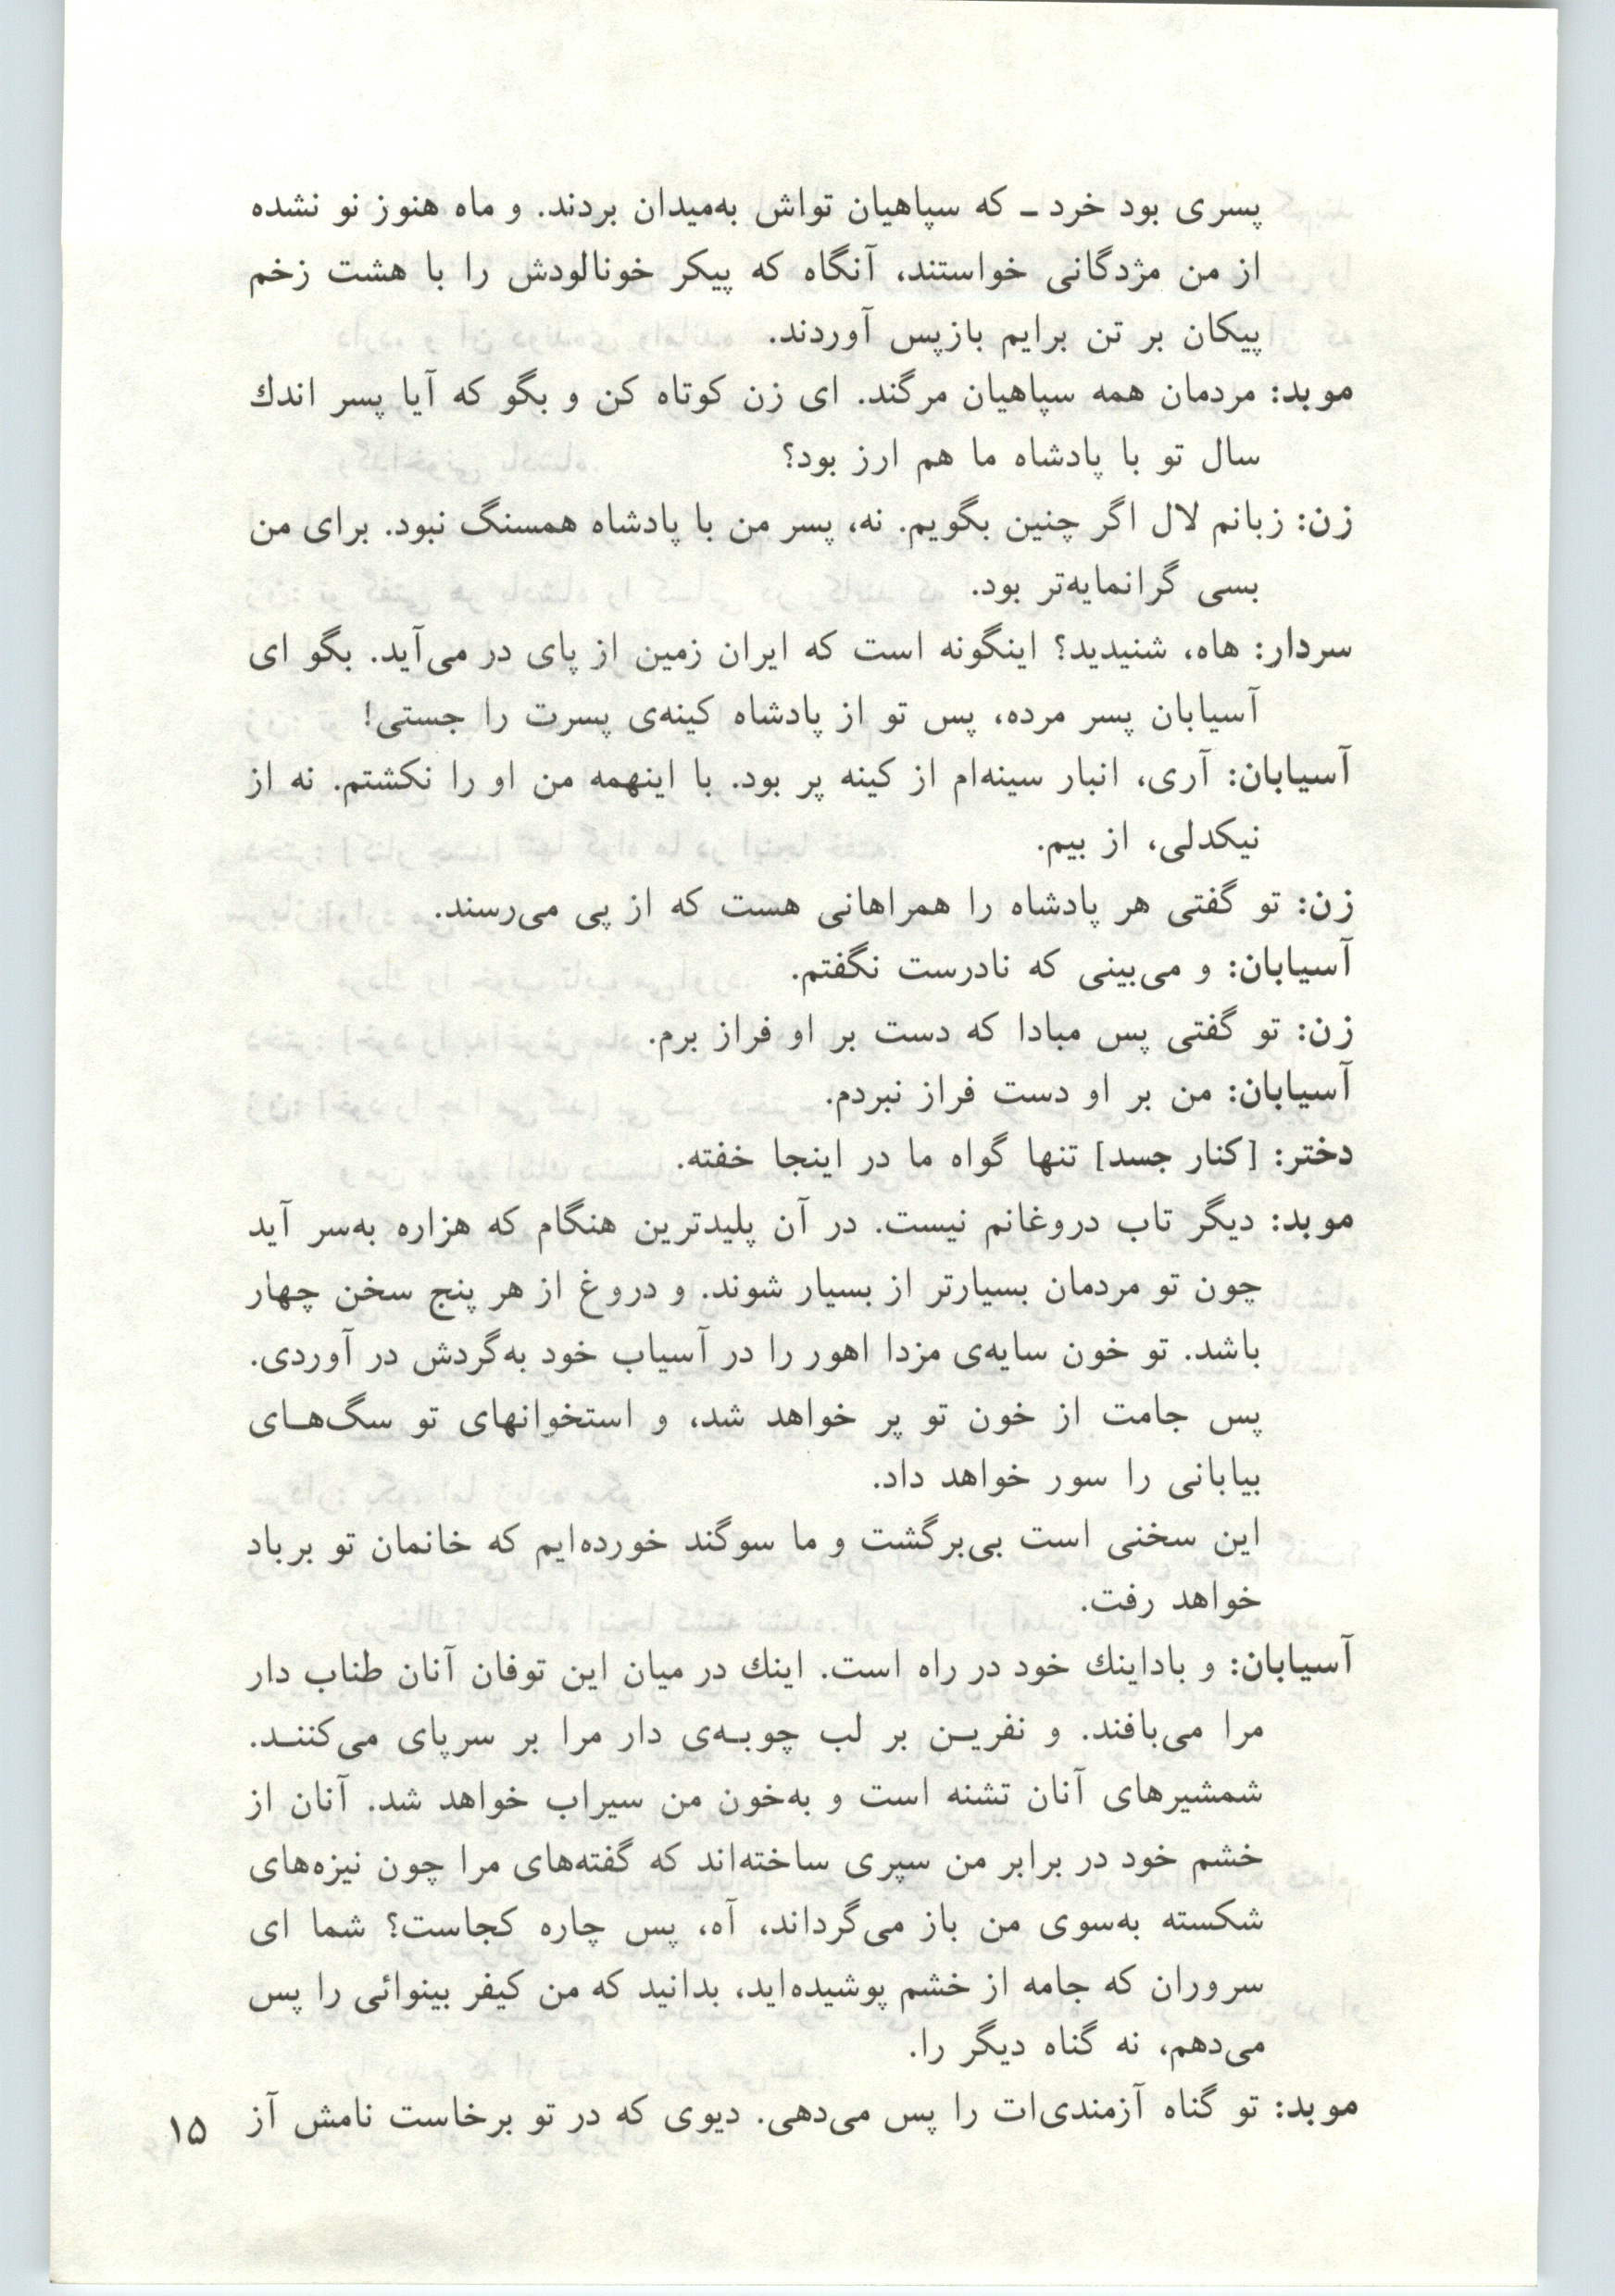 پسری بود خرد ـ که سپاهیان تواش به‌میدان بردند. و ماه هنوز نو نشده
از من مژدگانی خواستند، آنگاه که پیکر خونالودش را با هشت زخم
پیکان بر تن برایم بازپس آوردند.
موبد: مردمان همه سپاهیان مرگند. ای زن کوتاه کن و بگو که آیا پسر اندك
سال تو با پادشاه ما هم ارز بود؟
زن: زبانم لال اگر چنین بگویم. نه، پسر من با پادشاه همسنگ نبود. برای من
بسی گرانمایه‌تر بود.
سردار: هاه، شنیدید؟ اینگونه است که ایران زمین از پای در می‌آید. بگو ای
آسیابان پسر مرده، پس تو از پادشاه کینه‌ی پسرت را جستی!
آسیابان: آری، انبار سینه‌ام از کینه پر بود. با اینهمه من او را نکشتم. نه از
نیکدلی، از بیم.
زن: تو گفتی هر پادشاه را همراهانی هست که از پی می‌رسند.
آسیابان: و می‌بینی که نادرست نگفتم.
زن: تو گفتی پس مبادا که دست بر او فراز برم.
آسیابان: من بر او دست فراز نبردم.
دختر: [کنار جسد] تنها گواه ما در اینجا خفته.
موبد: دیگر تاب دروغانم نیست. در آن پلیدترین هنگام که هزاره به‌سر آید
چون تو مردمان بسیارتر از بسیار شوند. و دروغ از هر پنج سخن چهار
باشد. تو خون سایه‌ی مزدا اهور را در آسیاب خود به‌گردش در آوردی.
پس جامت از خون تو پر خواهد شد، و استخوانهای تو سگ‌هـای
بیابانی را سور خواهد داد.
این سخنی است بی‌برگشت و ما سوگند خورده‌ایم که خانمان تو برباد
خواهد رفت.
آسیابان: و باداینك خود در راه است. اینك در میان این توفان آنان طناب دار
مرا می‌بافند. و نفریـن بر لب چوبـه‌ی دار مرا بر سرپای می‌کننـد.
شمشیرهای آنان تشنه است و به‌خون من سیراب خواهد شد. آنان از
خشم خود در برابر من سپری ساخته‌اند که گفته‌های مرا چون نیزه‌های
شکسته به‌سوی من باز می‌گرداند، آه، پس چاره کجاست؟ شما ای
سروران که جامه از خشم پوشیده‌اید، بدانید که من کیفر بینوائی را پس
می‌دهم، نه گناه دیگر را.
موبد: تو گناه آزمندی‌ات را پس می‌دهی. دیوی که در تو برخاست نامش آز
۱۵